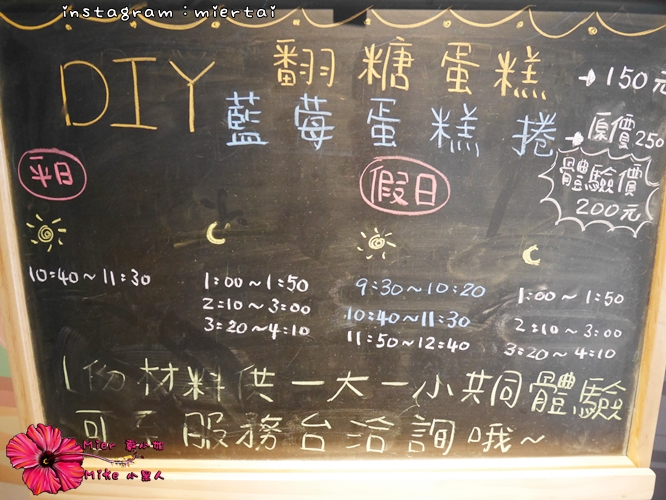 instagram：miertai
DIY 翻糖蛋糕 → 150元
藍莓蛋糕捲 → 原價250
體驗價
200元
平日
假日
10:40～11:30
1:00～1:50
2:10～3:00
3:20～4:10
9:30～10:20
10:40～11:30
11:50～12:40
1:00～1:50
2:10～3:00
3:20～4:10
1份材料供一大一小共同體驗
可 服務台洽詢哦～
Mier
Mike 小星人